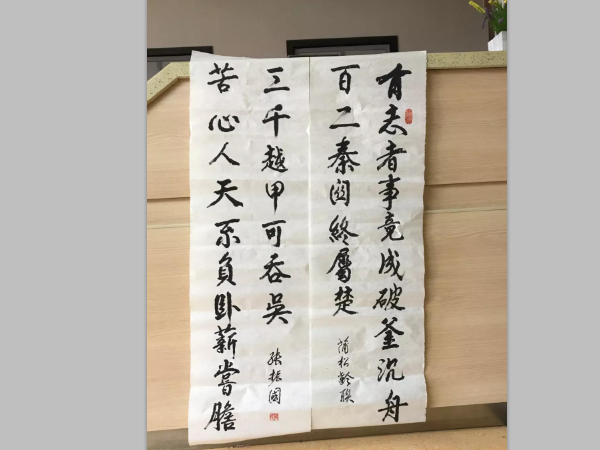 有志者事竟成破釜沉舟
百二秦関終屬楚
蒲松齡聯
苦心人天不負卧薪嘗膽
三千越甲可吞吳
張振國